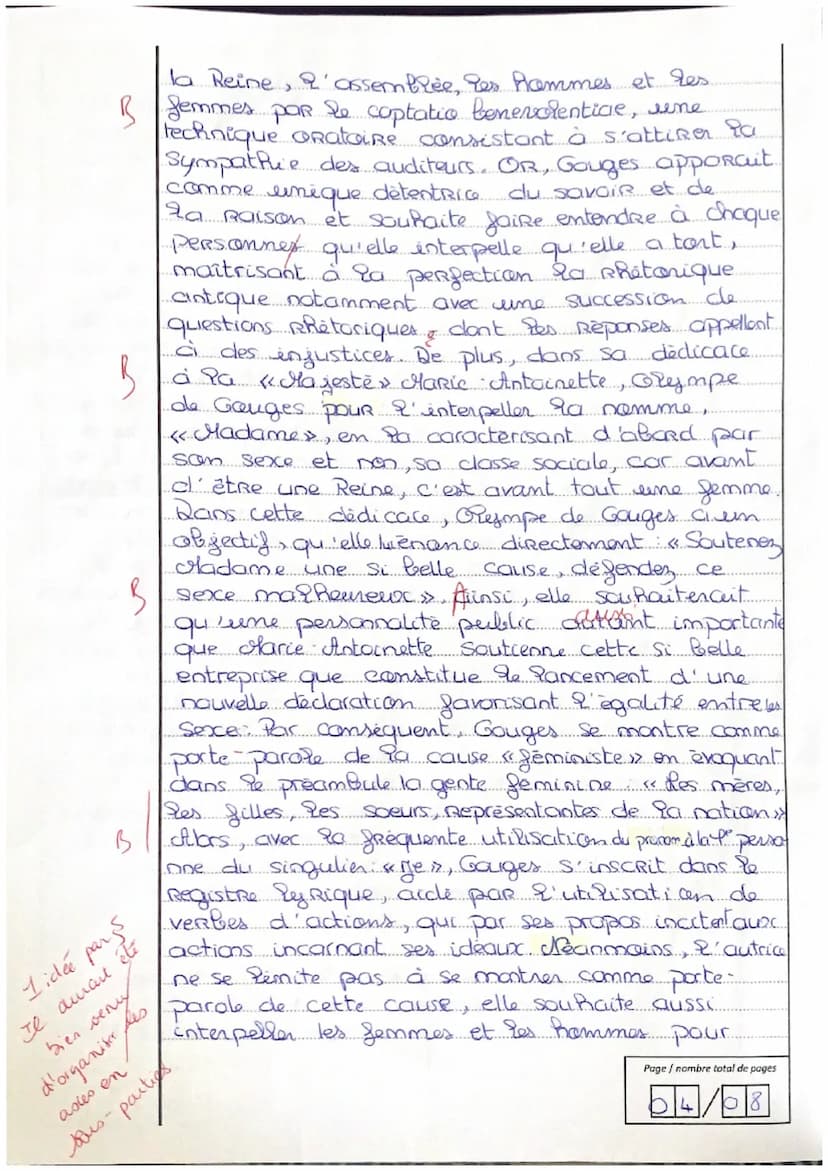 la Reine, l'assemblée, les hommes et les
B
femmes par le captatio benevolentiae, une
technique oratoire consistant à s'attirer la
sympathie des auditeurs. Or, Gouges apparait
comme unique détentrice du savoir et de
la raison et souhaite faire entendre à chaque
personnes qu'elle interpelle qu'elle a tort,
maîtrisant à la perfection la rhétorique
antique notamment avec une succession de
questions rhétoriques, dont les réponses appellent
à des injustices. De plus, dans sa dédicace
B
à la « Majesté » Marie-Antoinette, Olympe
de Gouges pour l'interpeller la nomme,
« Madame », en la caractérisant d'abord par
son sexe et non, sa classe sociale, car avant
d'être une Reine, c'est avant tout une femme.
Dans cette dédicace, Olympe de Gouges a un
objectif, qu'elle énance directement : « Soutenez
Madame une si belle cause, défendez ce
B
sexe malheureux ». Ainsi, elle souhaiterait
aussi
qu'une personnalité public autant importante
que Marie-Antoinette soutienne cette si belle
entreprise que constitue le lancement d'une
nouvelle déclaration favorisant l'égalité entre les
sexe. Par conséquent, Gouges se montre comme
porte-parole de la cause « féministe » en évoquant
dans le préambule la gente féminine : « les mères,
les filles, les soeurs, représentantes de la nation »
B
Alors, avec la fréquente utilisation du pronom à la 1re perso
nne du singulier : « Je », Gouges s'inscrit dans le
registre lyrique, aidé par l'utilisation de
verbes d'actions, qui par ses propos incitent aux
actions incarnant ses idéaux. Néanmoins, l'autrice
ne se limite pas à se montrer comme porte-
parole de cette cause, elle souhaite aussi
interpeller les femmes et les hommes pour
1 idée par §
Il aurait été
bien venu
d'organiser les
axes en
sous-parties
Page / nombre total de pages
04/08